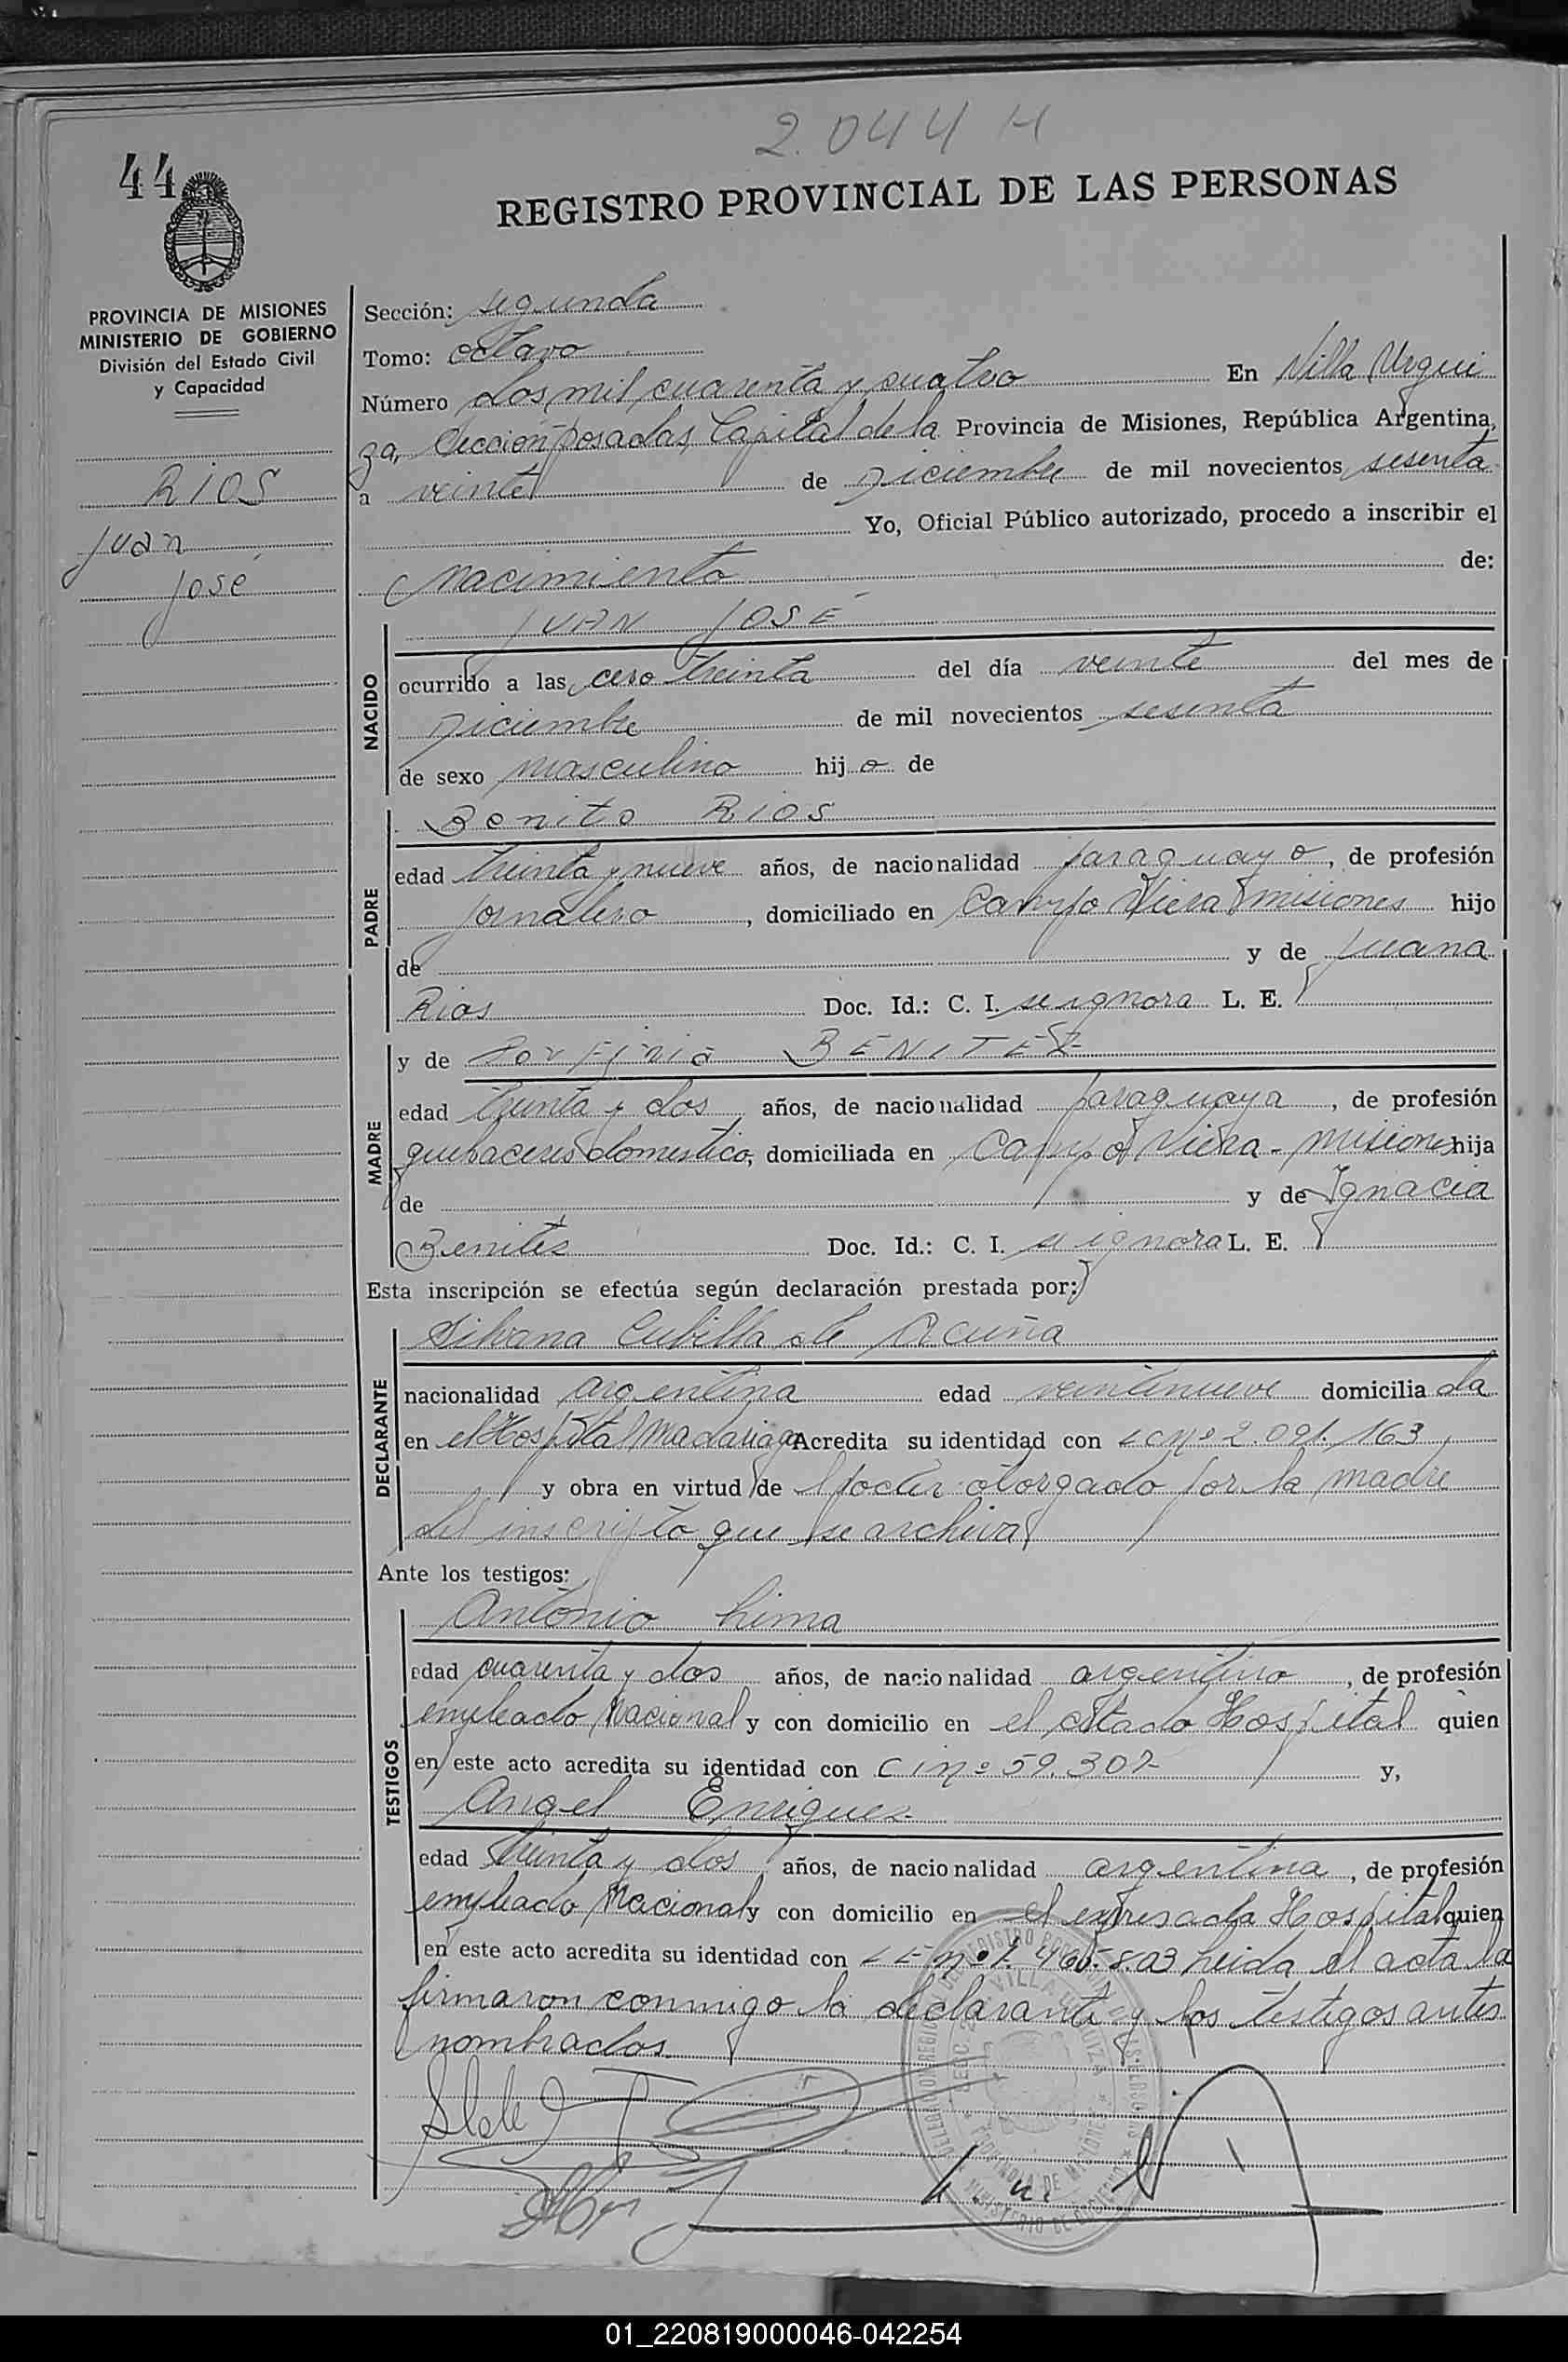 2.044 H
44
REGISTRO PROVINCIAL DE LAS PERSONAS
PROVINCIA DE MISIONES
MINISTERIO DE GOBIERNO
División del Estado Civil
y Capacidad
RIOS
Juan
José
Sección: segunda
Tomo: octavo
Número dos mil cuarenta y cuatro En Villa Urqui
za, Sección Posadas, Capital de la Provincia de Misiones, República Argentina,
a veinte de Diciembre de mil novecientos sesenta
Yo, Oficial Público autorizado, procedo a inscribir el
Nacimiento de:
JUAN JOSÉ
NACIDO
ocurrido a las cero treinta del día veinte del mes de
Diciembre de mil novecientos sesenta
de sexo masculino hijo de
PADRE
Benito RIOS
edad treinta y nueve años, de nacionalidad paraguayo, de profesión
jornalero, domiciliado en Campo Viera Misiones hijo
de y de Juana
Rios Doc. Id.: C. I. se ignora L. E.
MADRE
y de BENITEZ
edad treinta y dos años, de nacionalidad paraguaya, de profesión
quehaceres domestico, domiciliada en Campo Viera - Misiones hija
de y de Ignacia
Benites Doc. Id.: C. I. se ignora L. E.
Esta inscripción se efectúa según declaración prestada por:
DECLARANTE
Silvana Cubilla de Acuña
nacionalidad argentina edad veintinueve domiciliada
en el Hospital Madariaga Acredita su identidad con LC nº 2.091.163
y obra en virtud de poder otorgado por la madre
del inscripto que se archiva
Ante los testigos:
TESTIGOS
Antonio Lima
edad cuarenta y dos años, de nacionalidad argentino, de profesión
empleado Nacional y con domicilio en el citado Hospital quien
en este acto acredita su identidad con C I nº 59.307 y,
Angel Enriquez
edad treinta y dos años, de nacionalidad argentina, de profesión
empleado Nacional y con domicilio en el expresado Hospital quien
en este acto acredita su identidad con L E nº 7.465.803 Leida el acta la
firmaron conmigo la declarante y los testigos antes
nombrados.
01_220819000046-042254